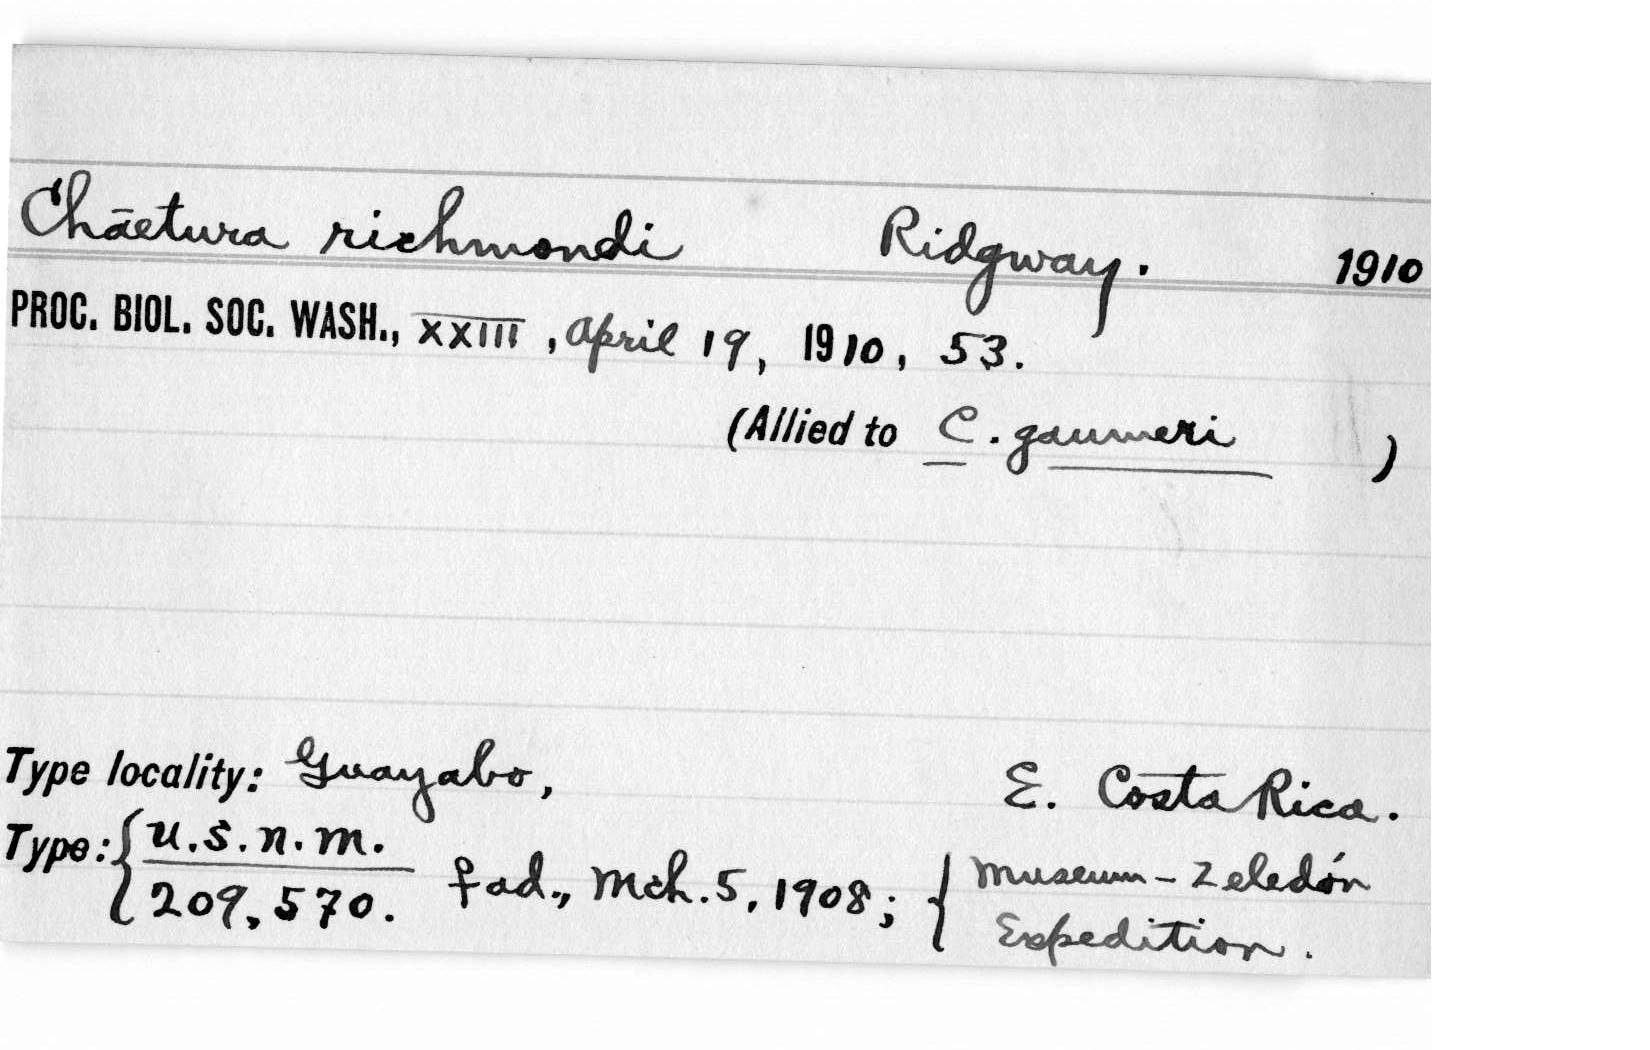 Chāetura richmondi Ridgway. 1910
PROC. BIOL. SOC. WASH., XXIII, April 19, 1910, 53.
(Allied to C. gaumeri )
Type locality: Guayabo, E. Costa Rica.
Type: { U.S.N.M. 209,570. ♀ ad., Mch. 5, 1908; { Museum-Zeledón
Expedition.